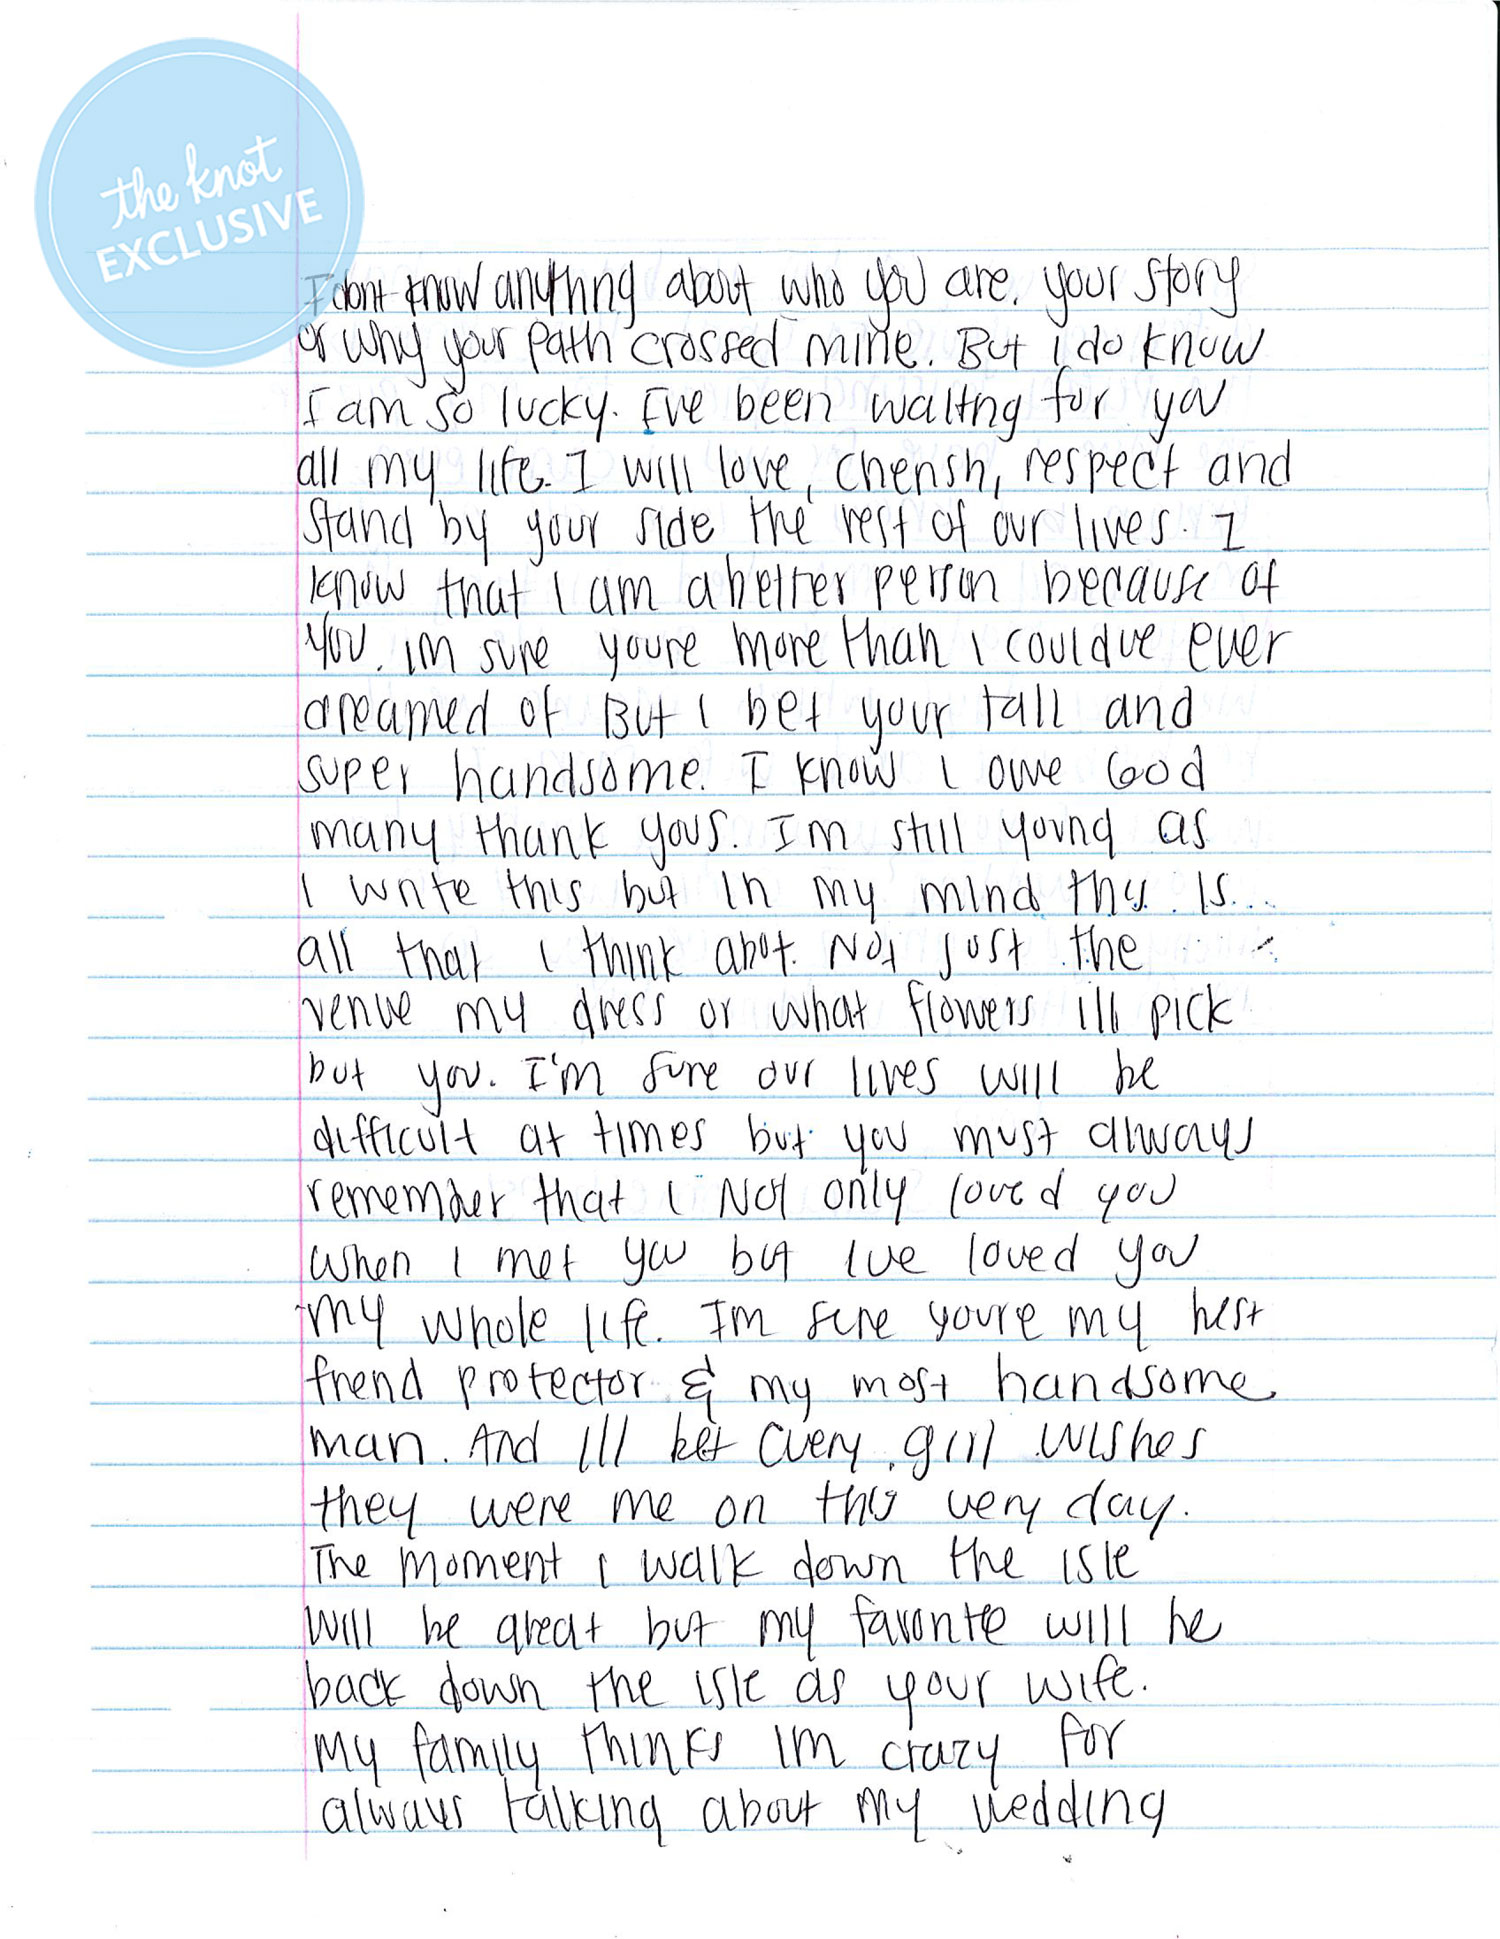 the knot
EXCLUSIVE
I dont know anything about who you are, your story
or why your path crossed mine. But i do know
I am so lucky. I've been waiting for you
all my life. I will love, cherish, respect and
stand by your side the rest of our lives. I
know that I am a better person because of
you. im sure youre more than i couldve ever
dreamed of But I bet your tall and
super handsome. I know I owe God
many thank yous. I'm still young as
I write this but in my mind this is
all that I think abot. Not just the
venue my dress or what flowers ill pick
but you. I'm sure our lives will be
difficult at times but you must always
remember that I Not only loved you
when I met you but Ive loved you
my whole life. Im sure youre my best
friend protector & my most handsome
man. And Ill bet every girl wishes
they were me on this very day.
The moment I walk down the isle
will be great but my favorite will be
back down the isle as your wife.
My family thinks Im crazy for
always talking about my wedding